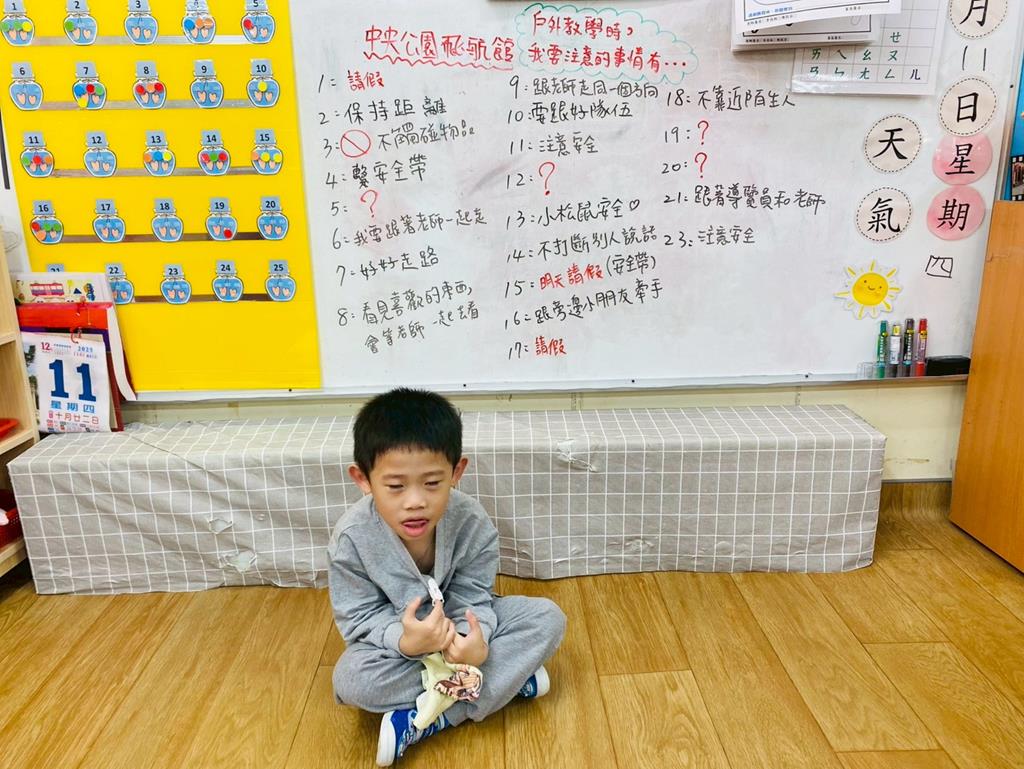 中央公園
戶外教學時，
我要注意的事情有...
1：請假
2：保持距離
3：不觸碰物品
4：繫安全帶
5：？
6：我要跟著老師一起走
7：好好走路
8：看見喜歡的東西，
會等老師一起去看
9：跟老師走同一個方向
10：要跟好隊伍
11：注意安全
12：？
13：小松鼠安全♡
14：不打斷別人說話
15：明天請假(安全帶)
16：跟旁邊小朋友牽手
17：請假
18：不靠近陌生人
19：？
20：？
21：跟著導覽員和老師
23：注意安全
月
11
日
星
期
四
天
氣
ㄞ ㄢ ㄦ
1 2 3 4 5
6 7 8 9 10
11 12 13 14 15
16 17 18 19 20
22 23 24 25
12
2025
11
星期四
十月廿二日